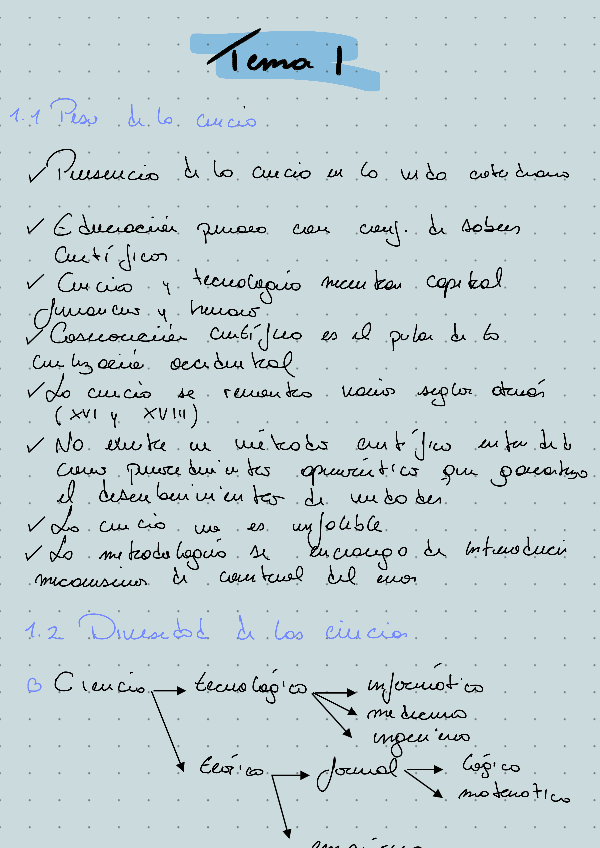 Tema 1
1.1 Peso de la ciencia
✓ Presencia de la ciencia en la vida cotidiana
✓ Educación primaria con conj. de saberes
científicos
✓ Ciencia y tecnología necesitan capital
financiero y humano
✓ Cosmovisión científica es el pilar de la
civilización occidental
✓ La ciencia se remonta varios siglos atrás
(XVI y XVIII)
✓ No existe un método científico entendido
como procedimiento que garantiza
el descubrimiento de verdades
✓ La ciencia no es infalible
✓ La metodología se encarga de introducir
mecanismos de control del error
1.2 Diversidad de las ciencias
Ciencia → tecnológica → informática
medicina
ingeniería
teórica → formal → lógica
matemática